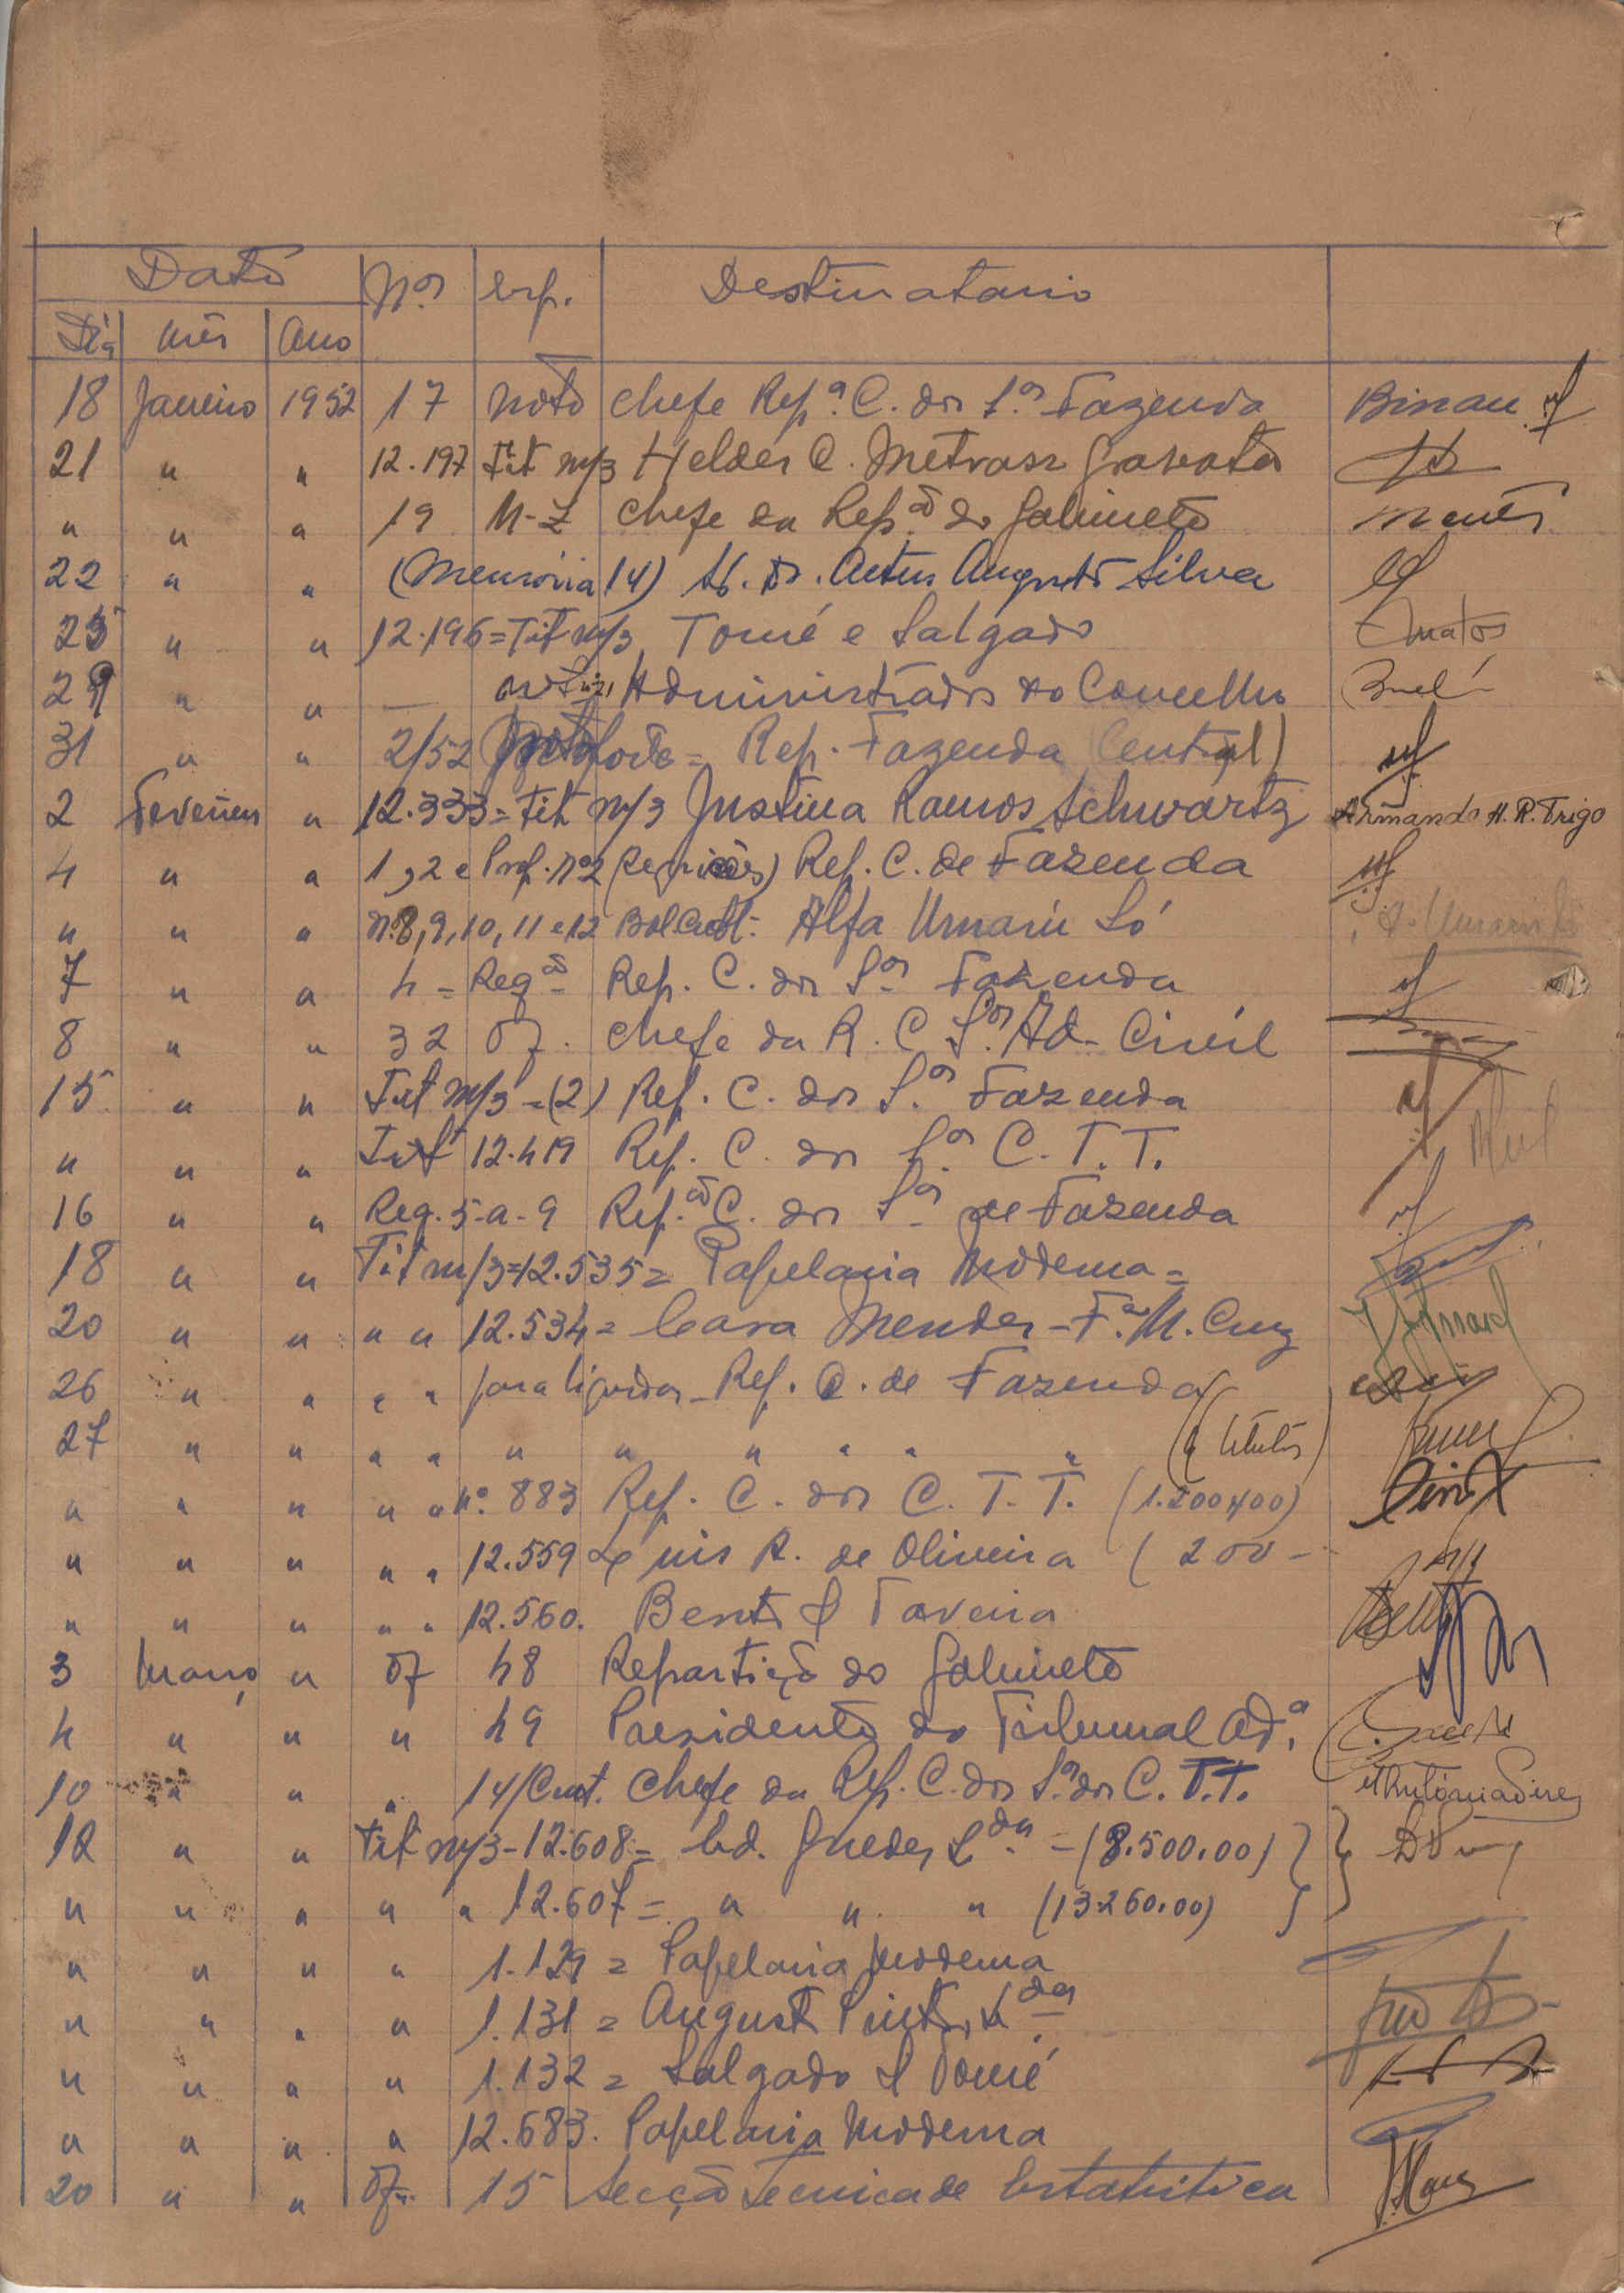 Data Nº Esp. Destinatario
Dia Mês Ano
18 Janeiro 1952 17 Nota Chefe Repª C. dos Sos Fazenda
21 " " 12.197 Tit m/3 Helder C. Metrass Gravata
" " " 19 N-Z Chefe da Repão do Gabinete
22 " " (Memória 14) Augusto Silva
25 " " 12.196 = Tit m/3 Tomé e Salgado Matos
29 " " — Administrador do Concelho
31 " " 2/52 = Rep. Fazenda (Central)
2 Fevereiro " 12.333 = Tit m/3 Justina Ramos Schwartz Armando H. R. Trigo
4 " " 1, 2 e nº 2 (Requisições) Rep. C. de Fazenda
" " " Nº 8, 9, 10, 11 e 12 Alfa Umaru Só
7 " " 4 = Reqão Rep. C. dos Sos Fazenda
8 " " 32 Of. Chefe da R. C. Sos Ad. Civil
15 " " Tit m/3 = (2) Rep. C. dos Sos Fazenda
" " " Tit 12.419 Rep. C. dos Sos C. T. T.
16 " " Req. 5-a-9 Repão C. dos Sos de Fazenda
18 " " Tit m/3 = 12.535 = Papelaria Moderna =
20 " " " " 12.534 = Casa Mendes - Fª M. Cruz
26 " " " " para liquidar - Rep. C. de Fazenda
27 " " " " " " " " " " (4 titulos)
" " " " " nº 883 Rep. C. dos C. T. T. (1.200,00)
" " " " " 12.559 Luis R. de Oliveira (200-
" " " " " 12.560. Bento & Taveira
3 Março " Of 48 Repartição do Gabinete
4 " " " 49 Presidente do Tribunal Adº.
10 " " " 14/Cont. Chefe da Rep. C. dos Sos dos C. T. T.
12 " " Tit m/3 - 12.608 = Ed. Guedes Lda. - (8.500.00)
" " " " " 12.607 = " " " (13.260.00)
" " " " 1.129 = Papelaria Moderna
" " " " 1.131 = Augusto Pinto, Lda.
" " " " 1.132 = Salgado & Tomé
" " " " 12.683. Papelaria Moderna
20 " " Of. 15 Secção Tecnica de Estatistica